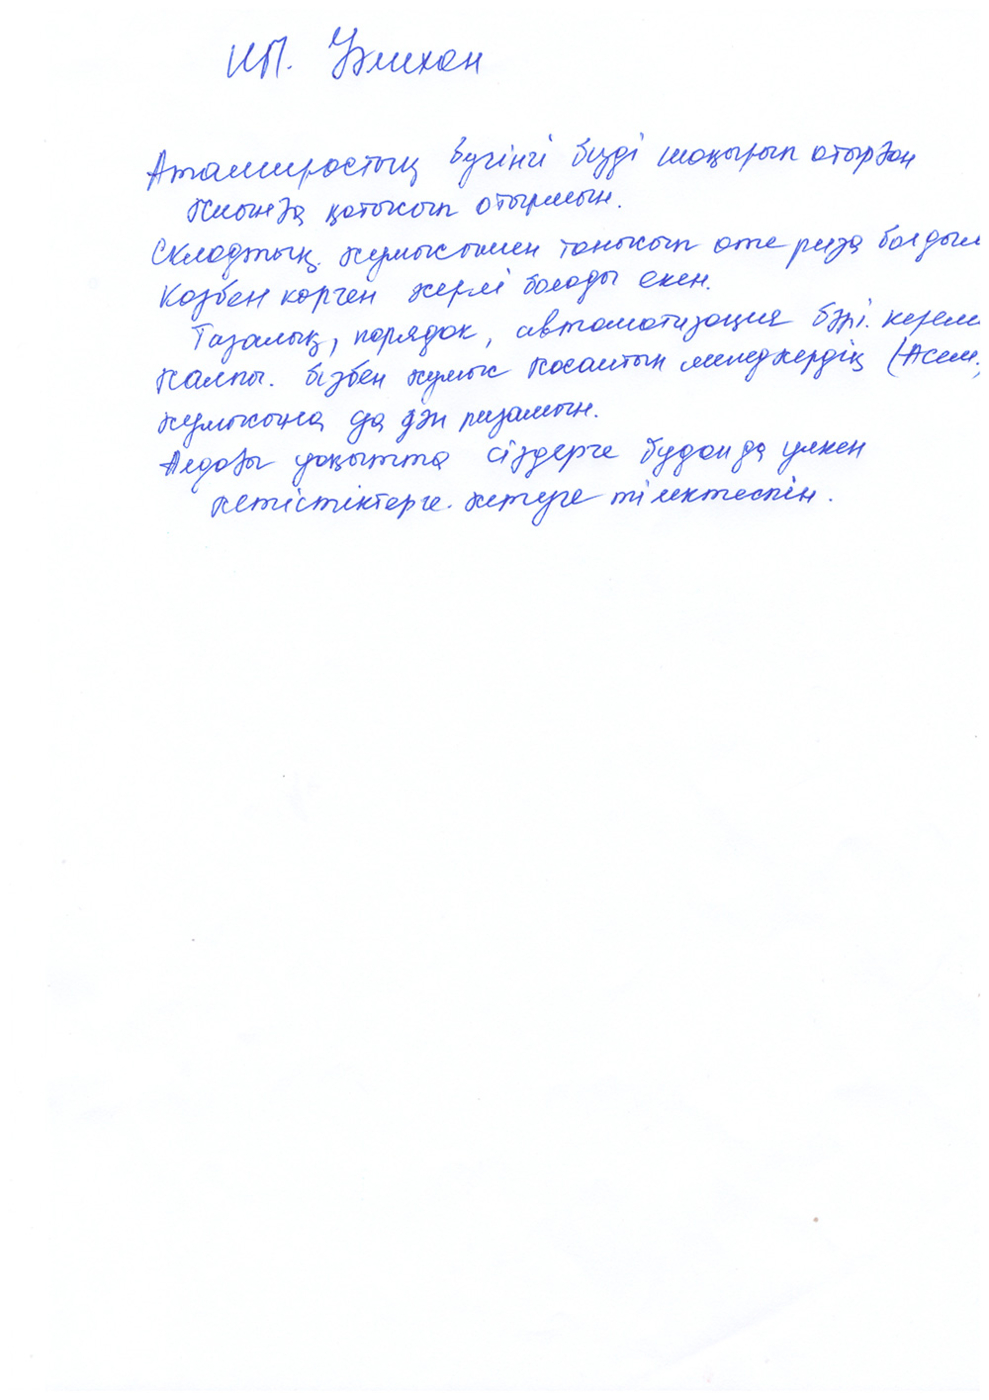 ИП. Улихан
Атамирастың бүгінгі бізді шақырып отырған
жиынға қатысып отырмын.
Складтың жұмысымен танысып өте риза болдым
Көзбен көрген жерлі болады екен.
Тазалық, порядок, автоматизация бәрі. керем
Жалпы. бізбен жұмыс жасайтын менеджердің (Асем.
жұмысына да дән ризамын.
Алдағы уақытта сіздерге бұданда үлкен
жетістіктерге. жетуге тілектеспін.